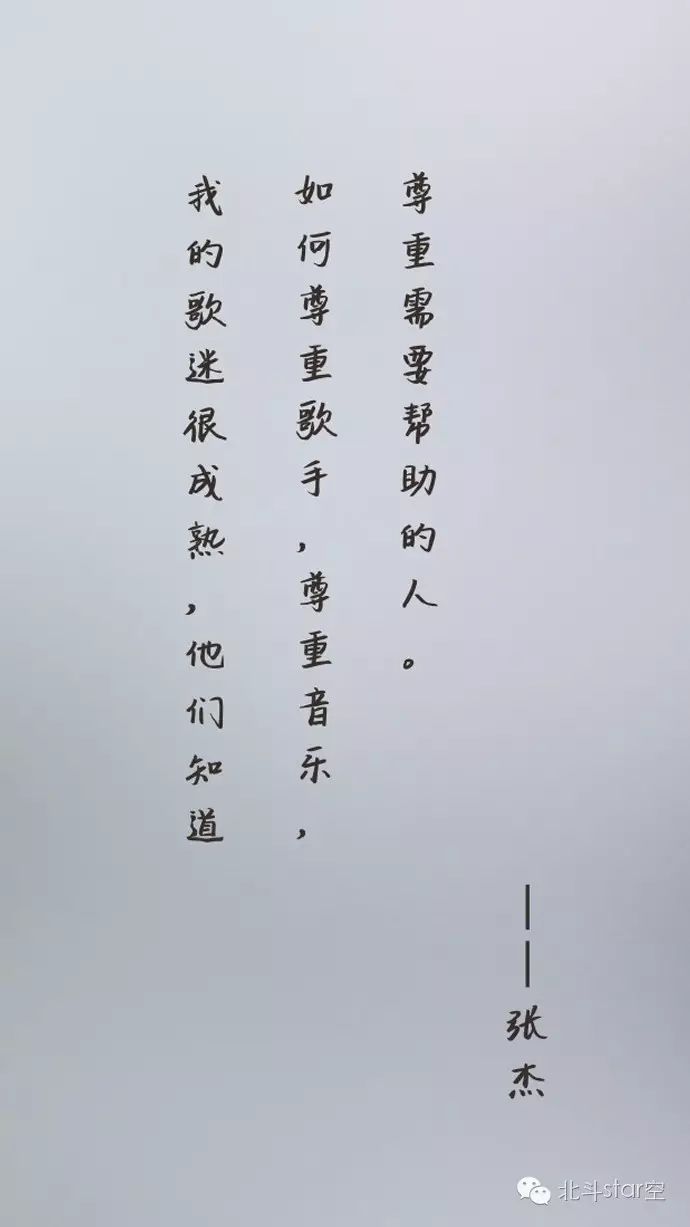 我的歌迷很成熟，他们知道
如何尊重歌手，尊重音乐，
尊重需要帮助的人。
——张杰
北斗star空